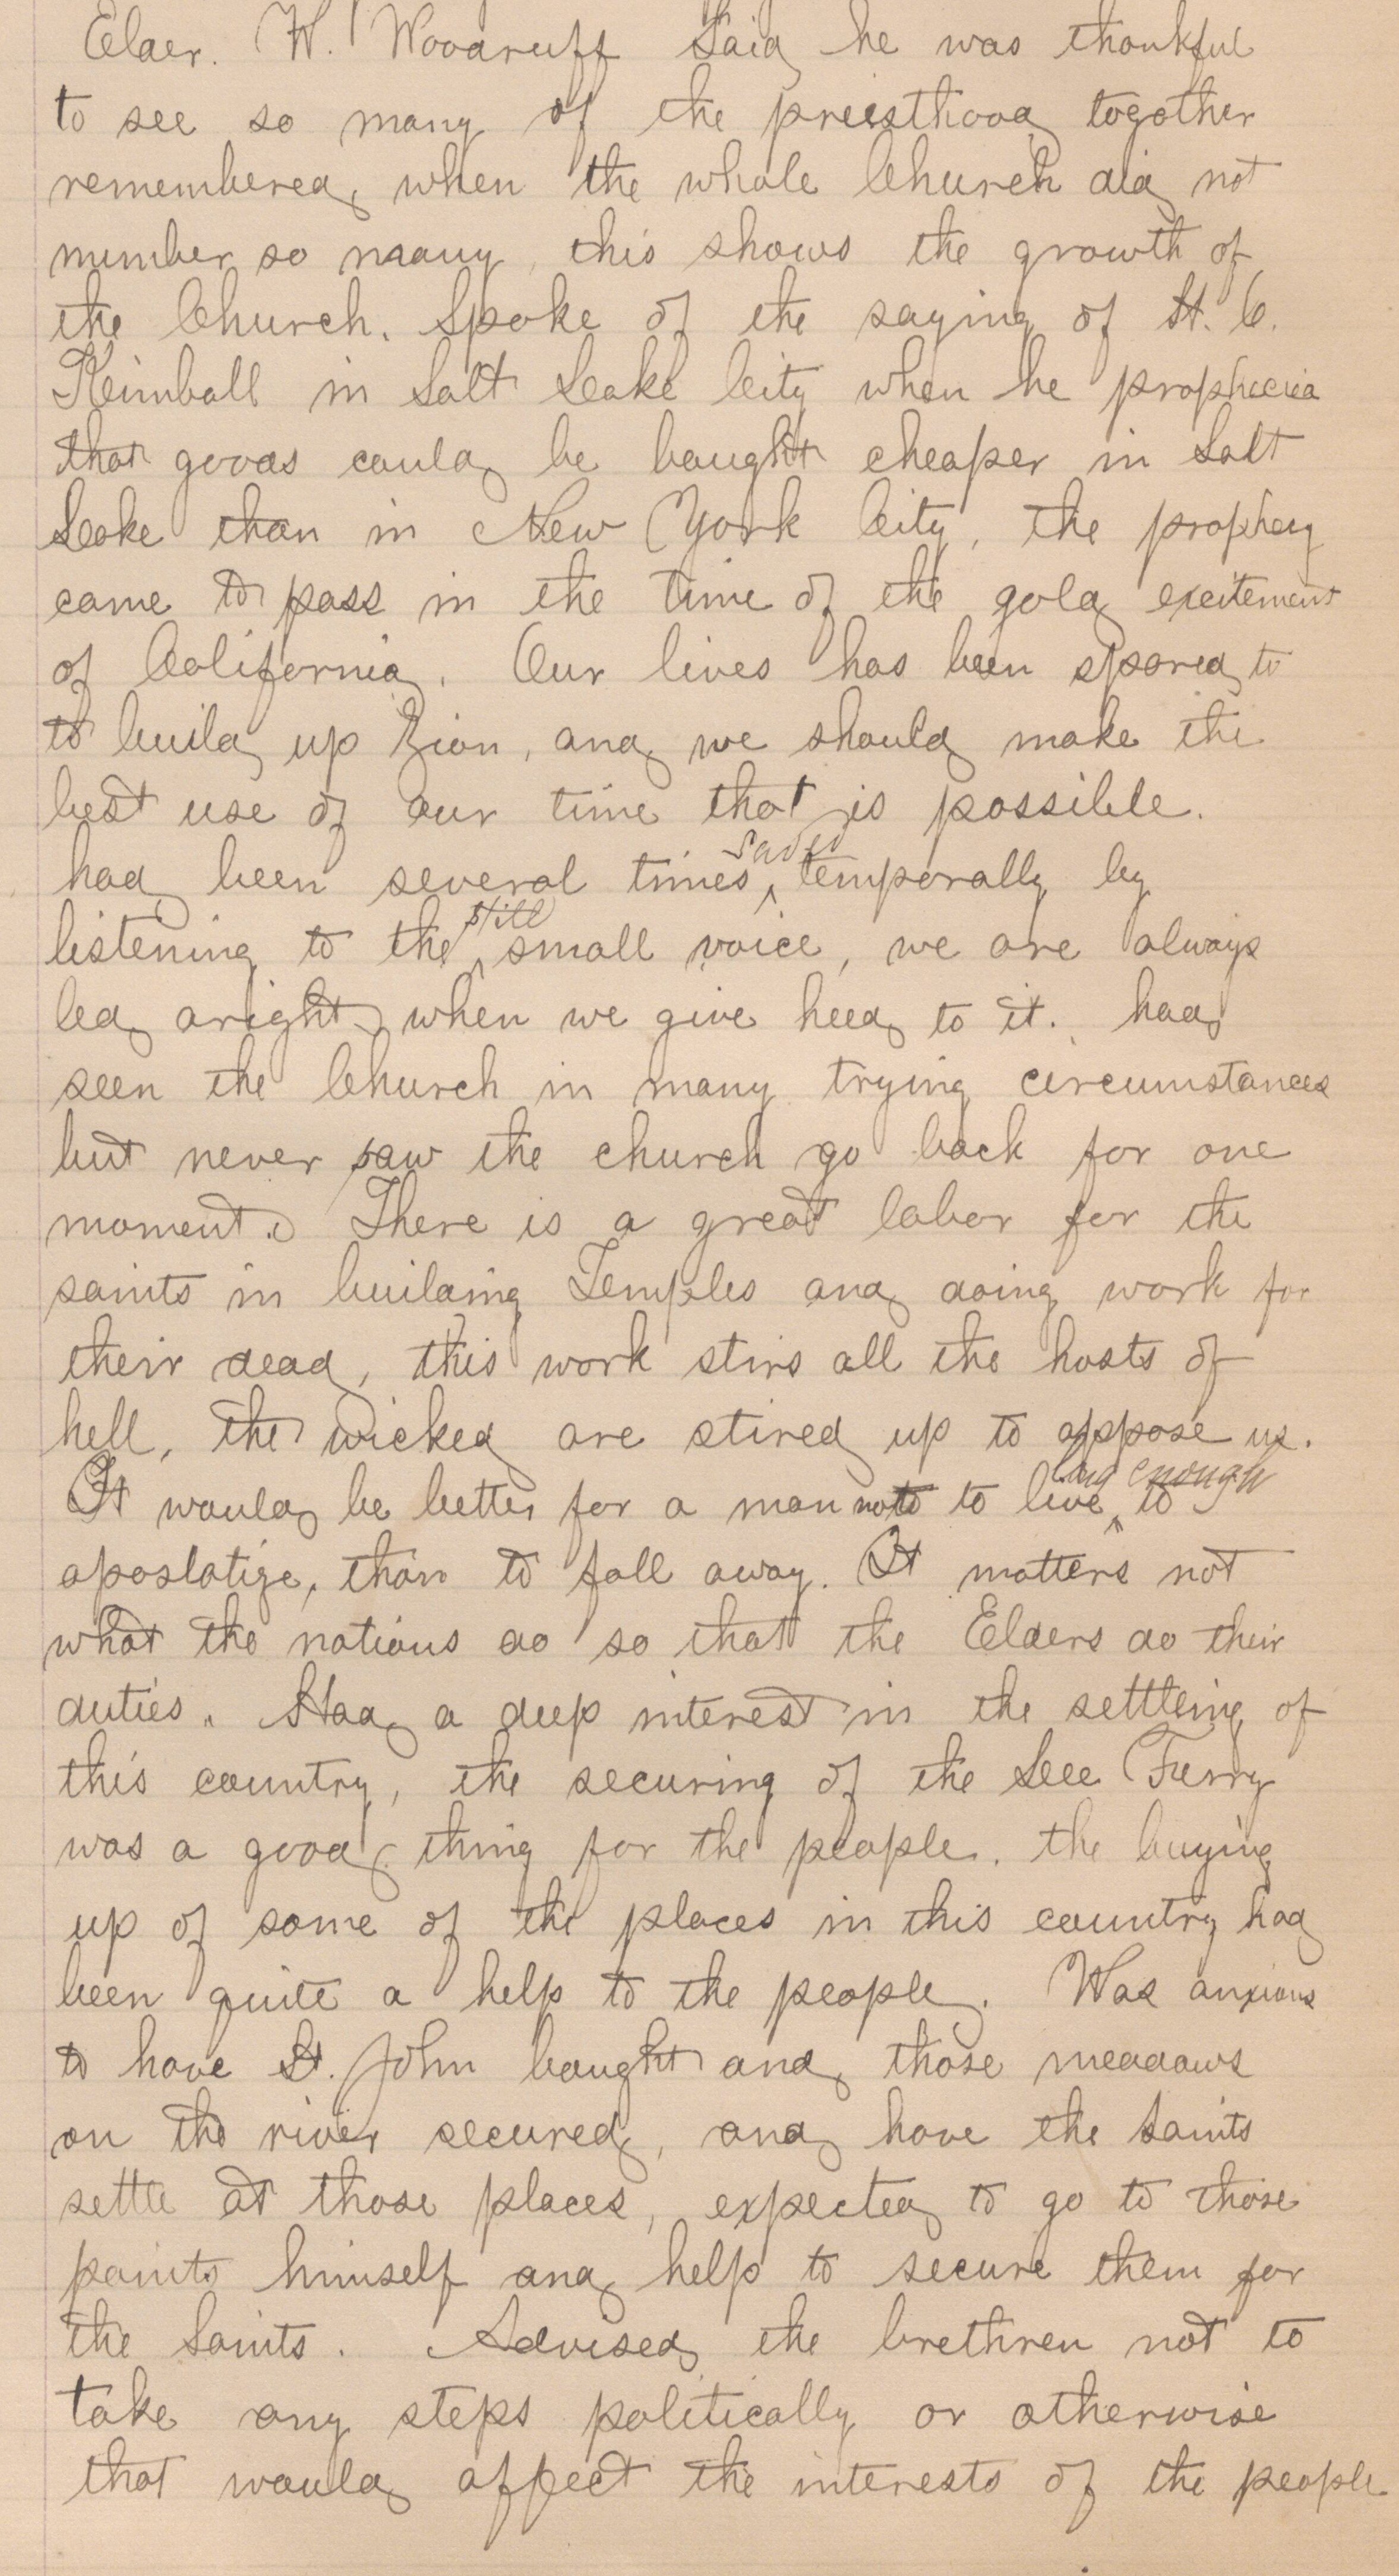 Elder. W. Woodruff Said he was thankful
to see so many of the preisthood together
remembered, when the whole Church did not
number so many, this shows the growth of
the Church. Spoke of the saying of H. C.
Keimball in Salt Leake City when he prophecied
that goods could be bought cheaper in Salt
Leake than in New York City, the prophecy
came to pass in the time of the gold excitement
of California. Our lives has been spared to
to build up Zion, and we should make the
best use of our time that is possible.
had been several times ^saved temporally by
listening to the ^still small voice, we are always
led aright when we give heed to it. had
seen the Church in many trying circumstances
but never saw the church go back for one
moment. There is a great labor for the
saints in building Temples and doing work for
their dead, this work stirs all the hosts of
hell, the wicked are stired up to oppose us.
It would be better for a man not to live ^long enough to
apostatize, than to fall away. It matters not
what the nations do so that the Elders do their
duties. Had a deep interest in the settleing of
this country, the securing of the Lee Ferry
was a good thing for the people. the buying
up of some of the places in this country had
been quite a help to the people. Was anxious
to have St. John bought and those meadows
on the river secured, and have the Saints
settle at those places, expected to go to those
points himself and help to secure them for
the Saints. Advised the brethren not to
take any steps politically or otherwise
that would affect the interests of the people